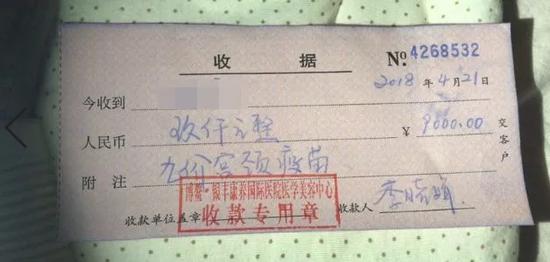 收 据
№ 4268532
2018 年 4 月 21 日
今收到
人民币 玖仟元整 ¥ 9000.00
附 注 九价宫颈疫苗
交客户
博鳌·银丰康养国际医院医学美容中心
收款专用章
收款单位盖章 收款人